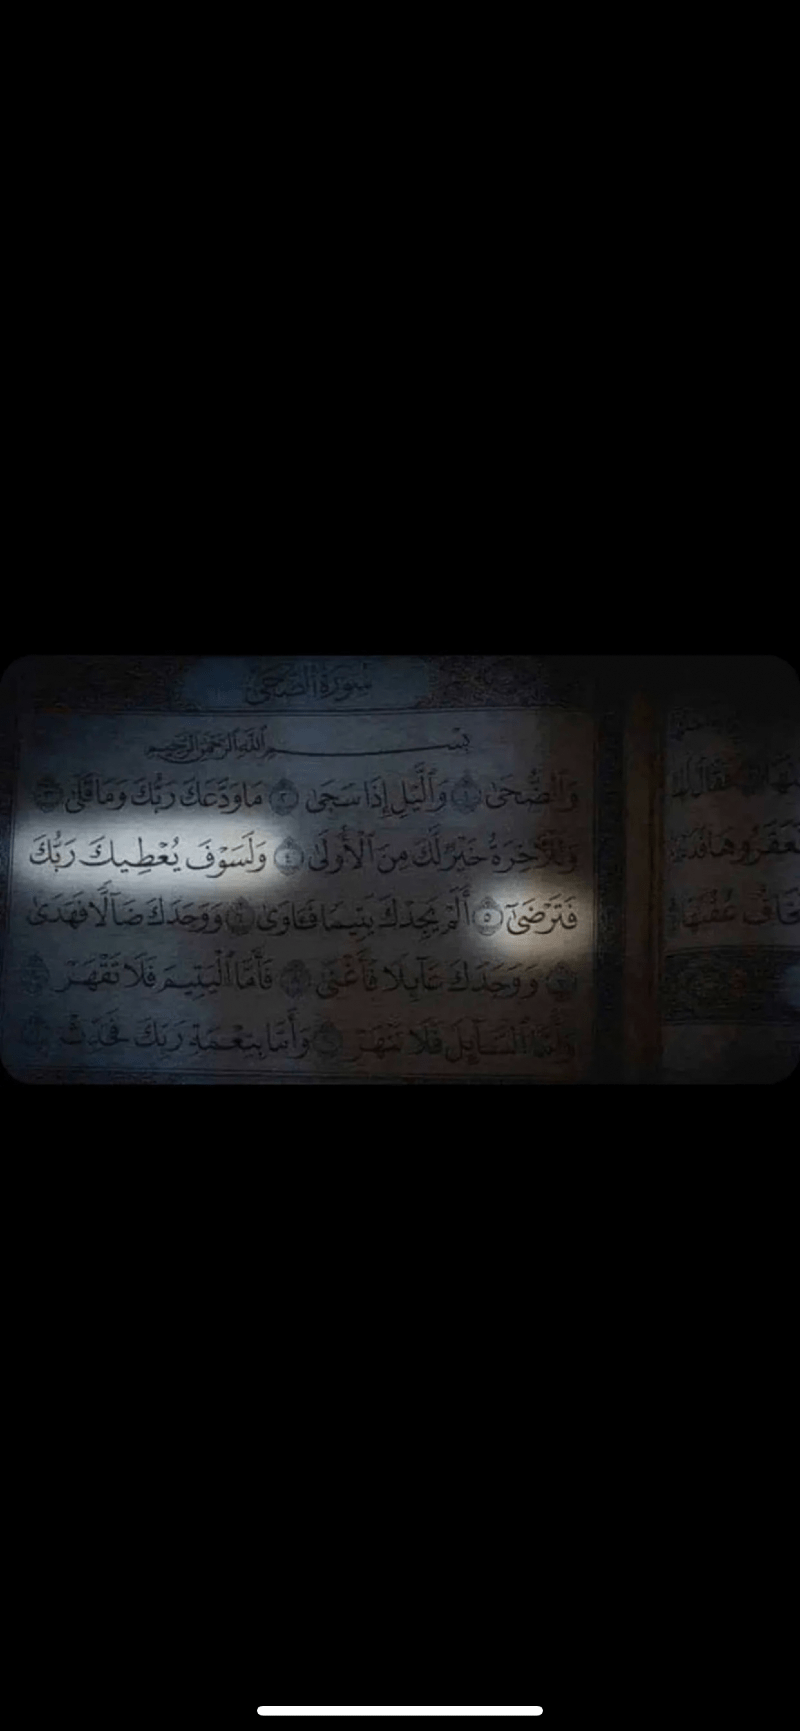 سُورَةُ الضُّحَىٰ
بِسْمِ اللَّهِ الرَّحْمَٰنِ الرَّحِيمِ
وَٱلضُّحَىٰ ١ وَٱلَّيْلِ إِذَا سَجَىٰ ٢ مَا وَدَّعَكَ رَبُّكَ وَمَا قَلَىٰ ٣
وَلَلْأَخِرَةُ خَيْرٌ لَّكَ مِنَ ٱلْأُولَىٰ ٤ وَلَسَوْفَ يُعْطِيكَ رَبُّكَ
فَتَرْضَىٰٓ ٥ أَلَمْ يَجِدْكَ يَتِيمًا فَـَٔاوَىٰ ٦ وَوَجَدَكَ ضَآلًّا فَهَدَىٰ
٧ وَوَجَدَكَ عَآئِلًا فَأَغْنَىٰ ٨ فَأَمَّا ٱلْيَتِيمَ فَلَا تَقْهَرْ ٩
وَأَمَّا ٱلسَّآئِلَ فَلَا تَنْهَرْ ١٠ وَأَمَّا بِنِعْمَةِ رَبِّكَ فَحَدِّثْ ١١